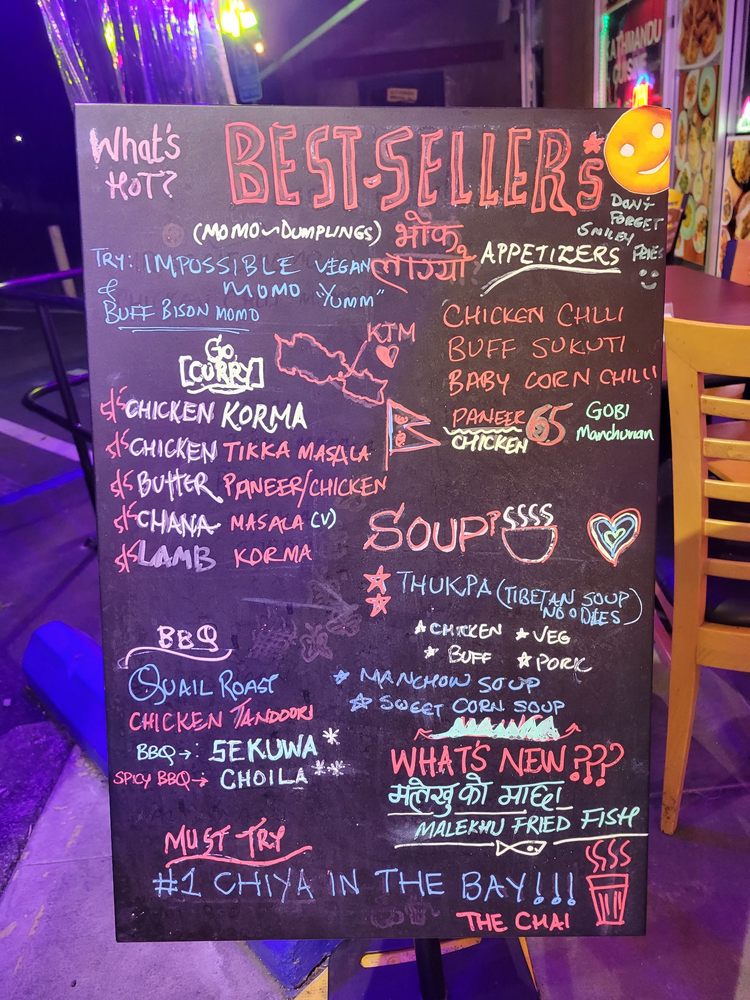 KATHMANDU
CUISINE
What's
HOT?
BEST-SELLERS
DON'T
FORGET
SMILEY
(MOMO~DUMPLINGS)
भोक
लाग्यो
TRY: IMPOSSIBLE VEGAN
& MOMO "YUMM"
BUFF BISON MOMO
APPETIZERS
CHICKEN CHILLI
BUFF SUKUTI
BABY CORN CHILLI
PANEER 65
CHICKEN
GOBI
Manchurian
KTM
GO
[CURRY]
CHICKEN KORMA
CHICKEN TIKKA MASALA
BUTTER PANEER/CHICKEN
CHANA MASALA (V)
LAMB KORMA
SOUP
THUKPA (TIBETAN SOUP
NOODLES)
CHICKEN VEG
BUFF PORK
MANCHOW SOUP
SWEET CORN SOUP
BBQ
QUAIL ROAST
CHICKEN TANDOORI
BBQ→: SEKUWA *
SPICY BBQ→ CHOILA **
WHAT'S NEW???
मलेखु को माछा
MALEKHU FRIED FISH
MUST TRY
#1 CHIYA IN THE BAY!!!
THE CHAI